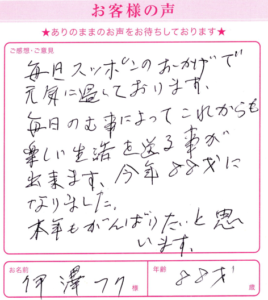 お客様の声
★ありのままのお声をお待ちしております★
ご感想・ご意見
毎日スッポンのおかげで
元気に過しております。
毎日のむ事によってこれからも
楽しい生活を送る事が
出来ます。今年88才に
なりました。
本年もがんばりたいと思
います。
お名前
伊澤フク 様
年齢
88才 歳